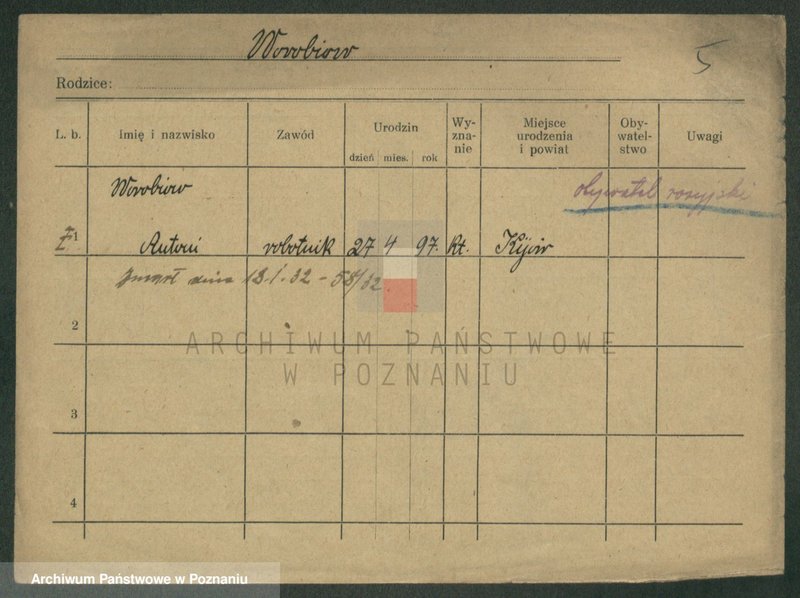 Worobiow
5
Rodzice:
L. b. Imię i nazwisko Zawód Urodzin dzień mies. rok Wy-zna-nie Miejsce urodzenia i powiat Oby-watel-stwo Uwagi
Worobiow obywatel rosyjski
1 Antoni robotnik 27 4 97. kt. Kijów
zmarł dnia 13.1.32 - 58/32
2
ARCHIWUM PAŃSTWOWE
W POZNANIU
3
4
Archiwum Państwowe w Poznaniu